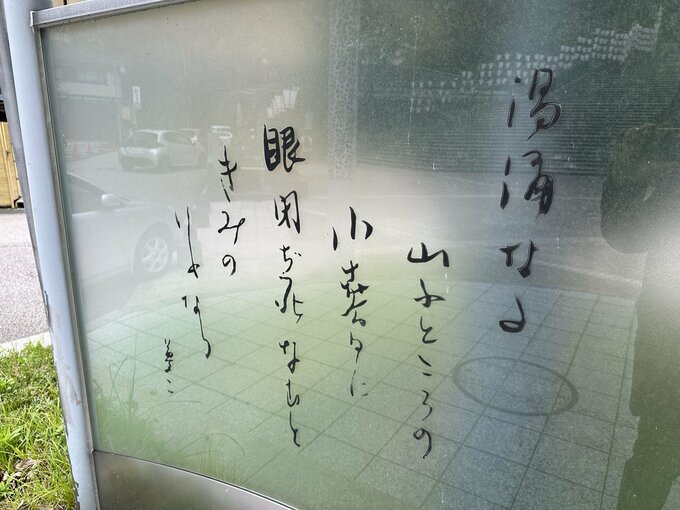 湯涌なる
山ふところの
小春日に
眼閉ぢ死なむと
きみの
いふなる
夢二